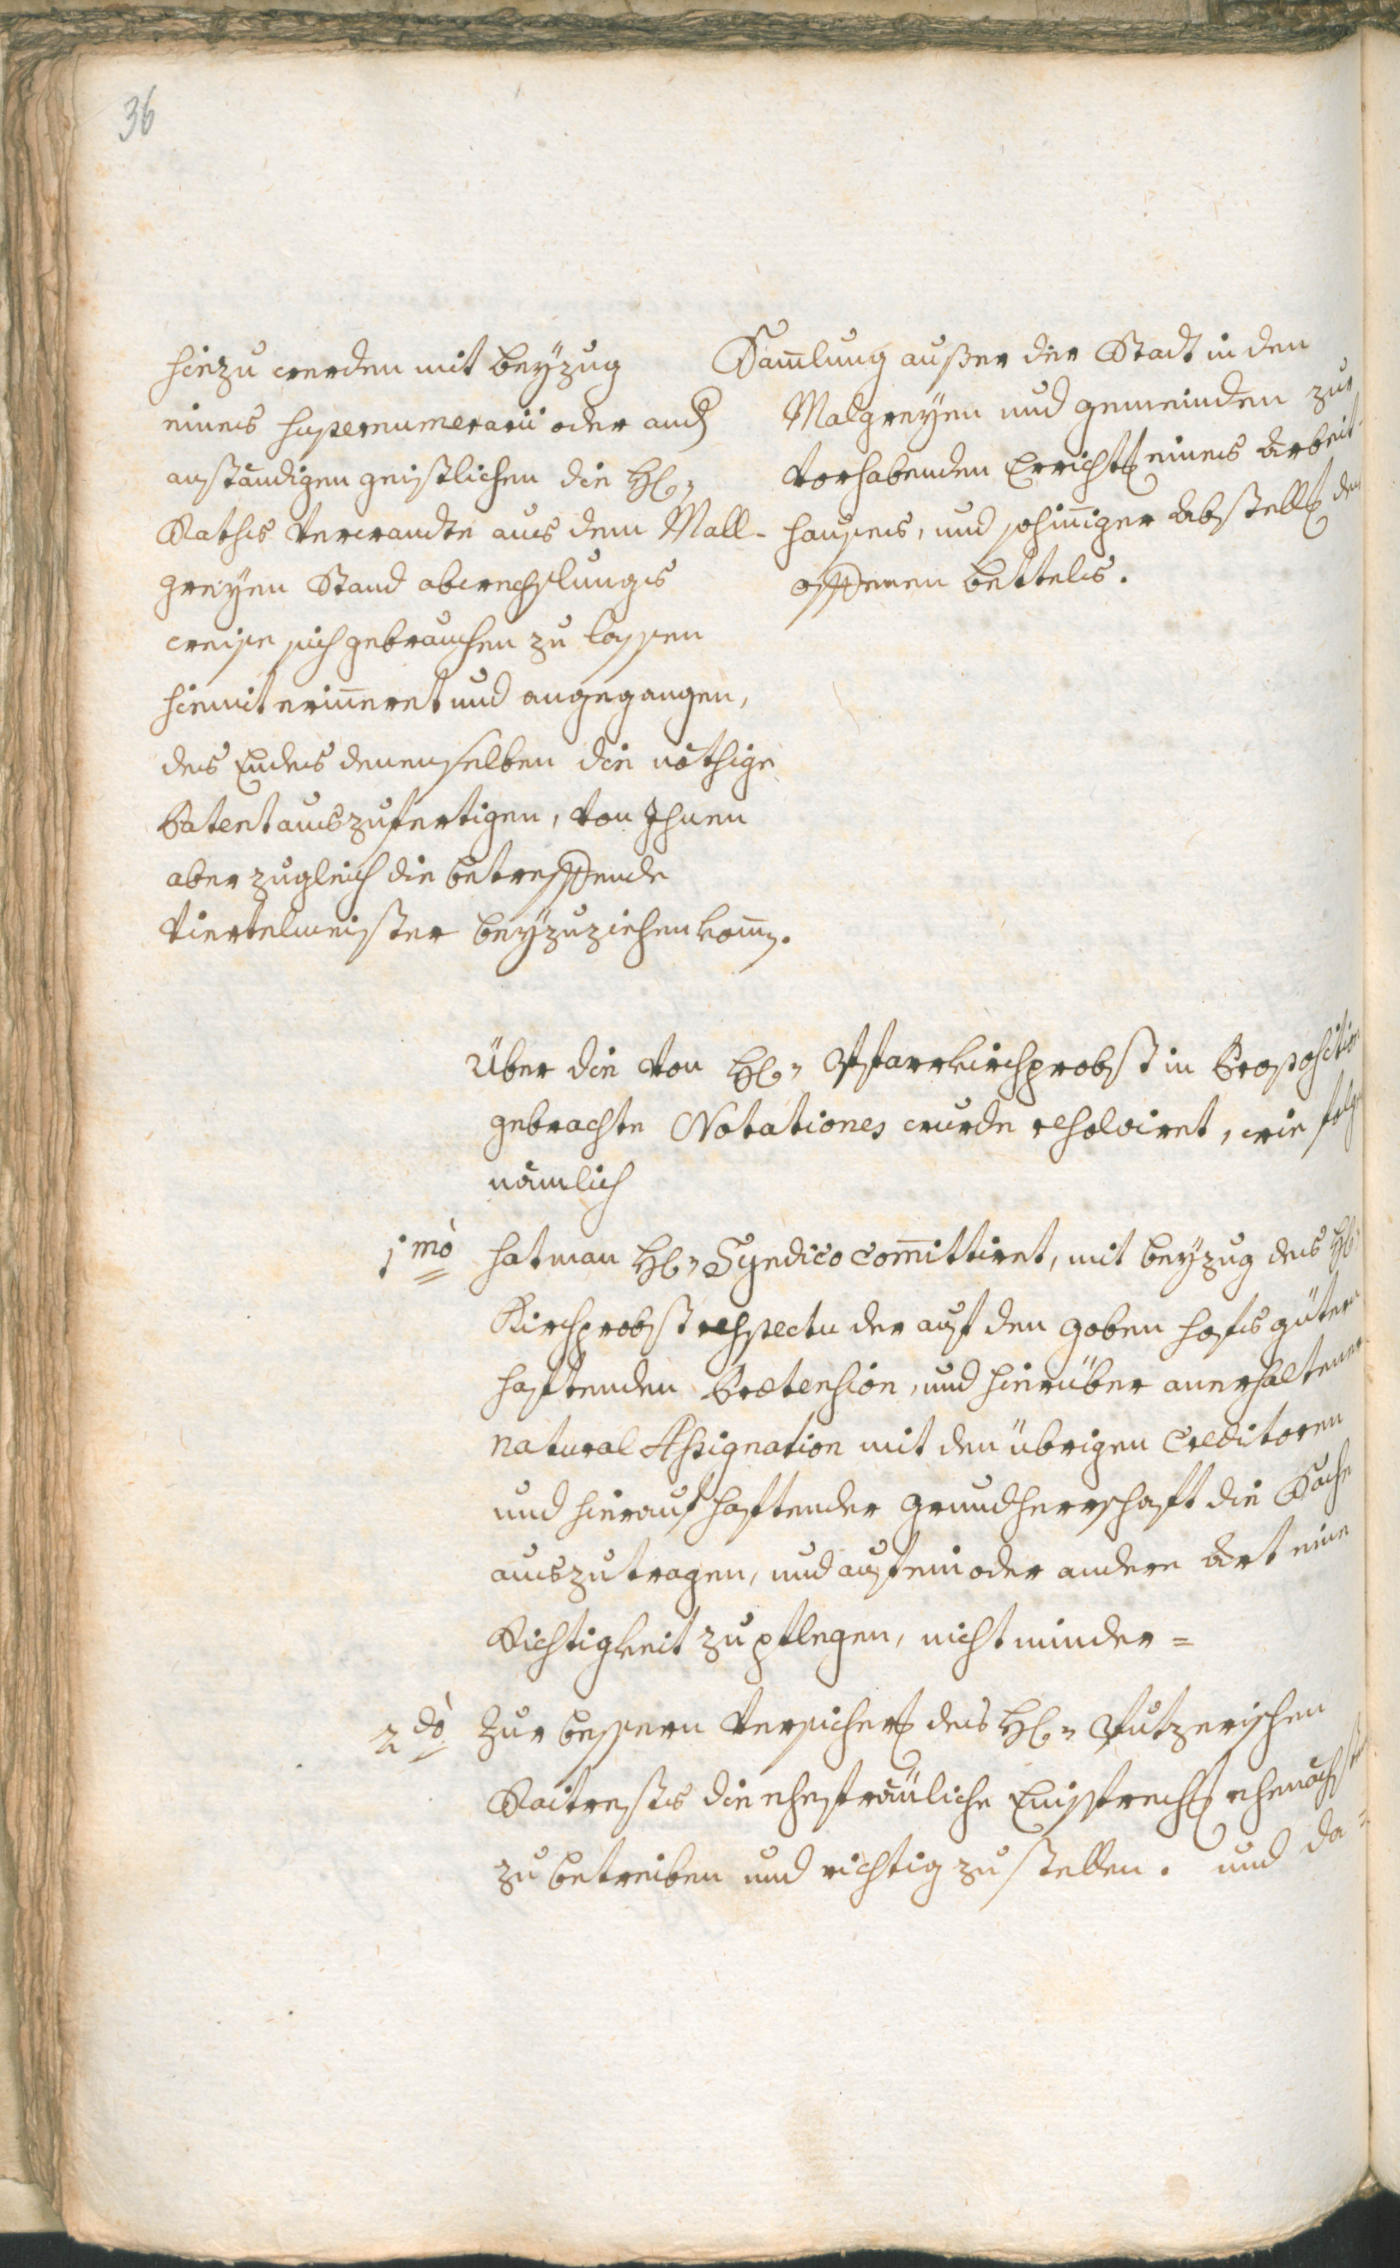 36
hiezu werden mit beÿzug
eines supernumerarii oder auch
anständigen geistlichen die H:
Raths Verwandte aus dem Mall-
greÿen Stand abwechslungs
weise sich gebrauchen zu lassen
hiemit eriñeret und angegangen,
des Endes denenselben die nöthige
Patent auszufertigen, von Ihnen
aber zugleich die betreffende
Viertelmeister beÿzuziehen kom̄en.
Sam̄lung ausser der Stadt in den
Malgreÿen und gemeinden zur
vorhabenden Errichtg eines Arbeit-
hauses, und sohiniger Abstellg des
offenen bettels.
Über die von H: Pfarrkirchprobst in Proposition
gebrachte Notationes wurde resolviret, wie folgt
nämlich
1mò hat man H: Syndico com̄ittiret, mit beÿzug des H:
Kirchprobst respectu der auf den hofs gütern
haftenden Prætension, und hierüber anerhaltener
natural Assignation mit den übrigen Creditoren
und hierauf haftender grundherrschaft die Sache
auszutragen, und auf ein oder andere Art eine
Richtigkeit zu pflegen, nicht minder =
2dò Zur bessern Versicherg des H: Putzerischen
Raitrests die ehefräuliche ehenächstens
zu betreiben und richtig zu stellen. und da =